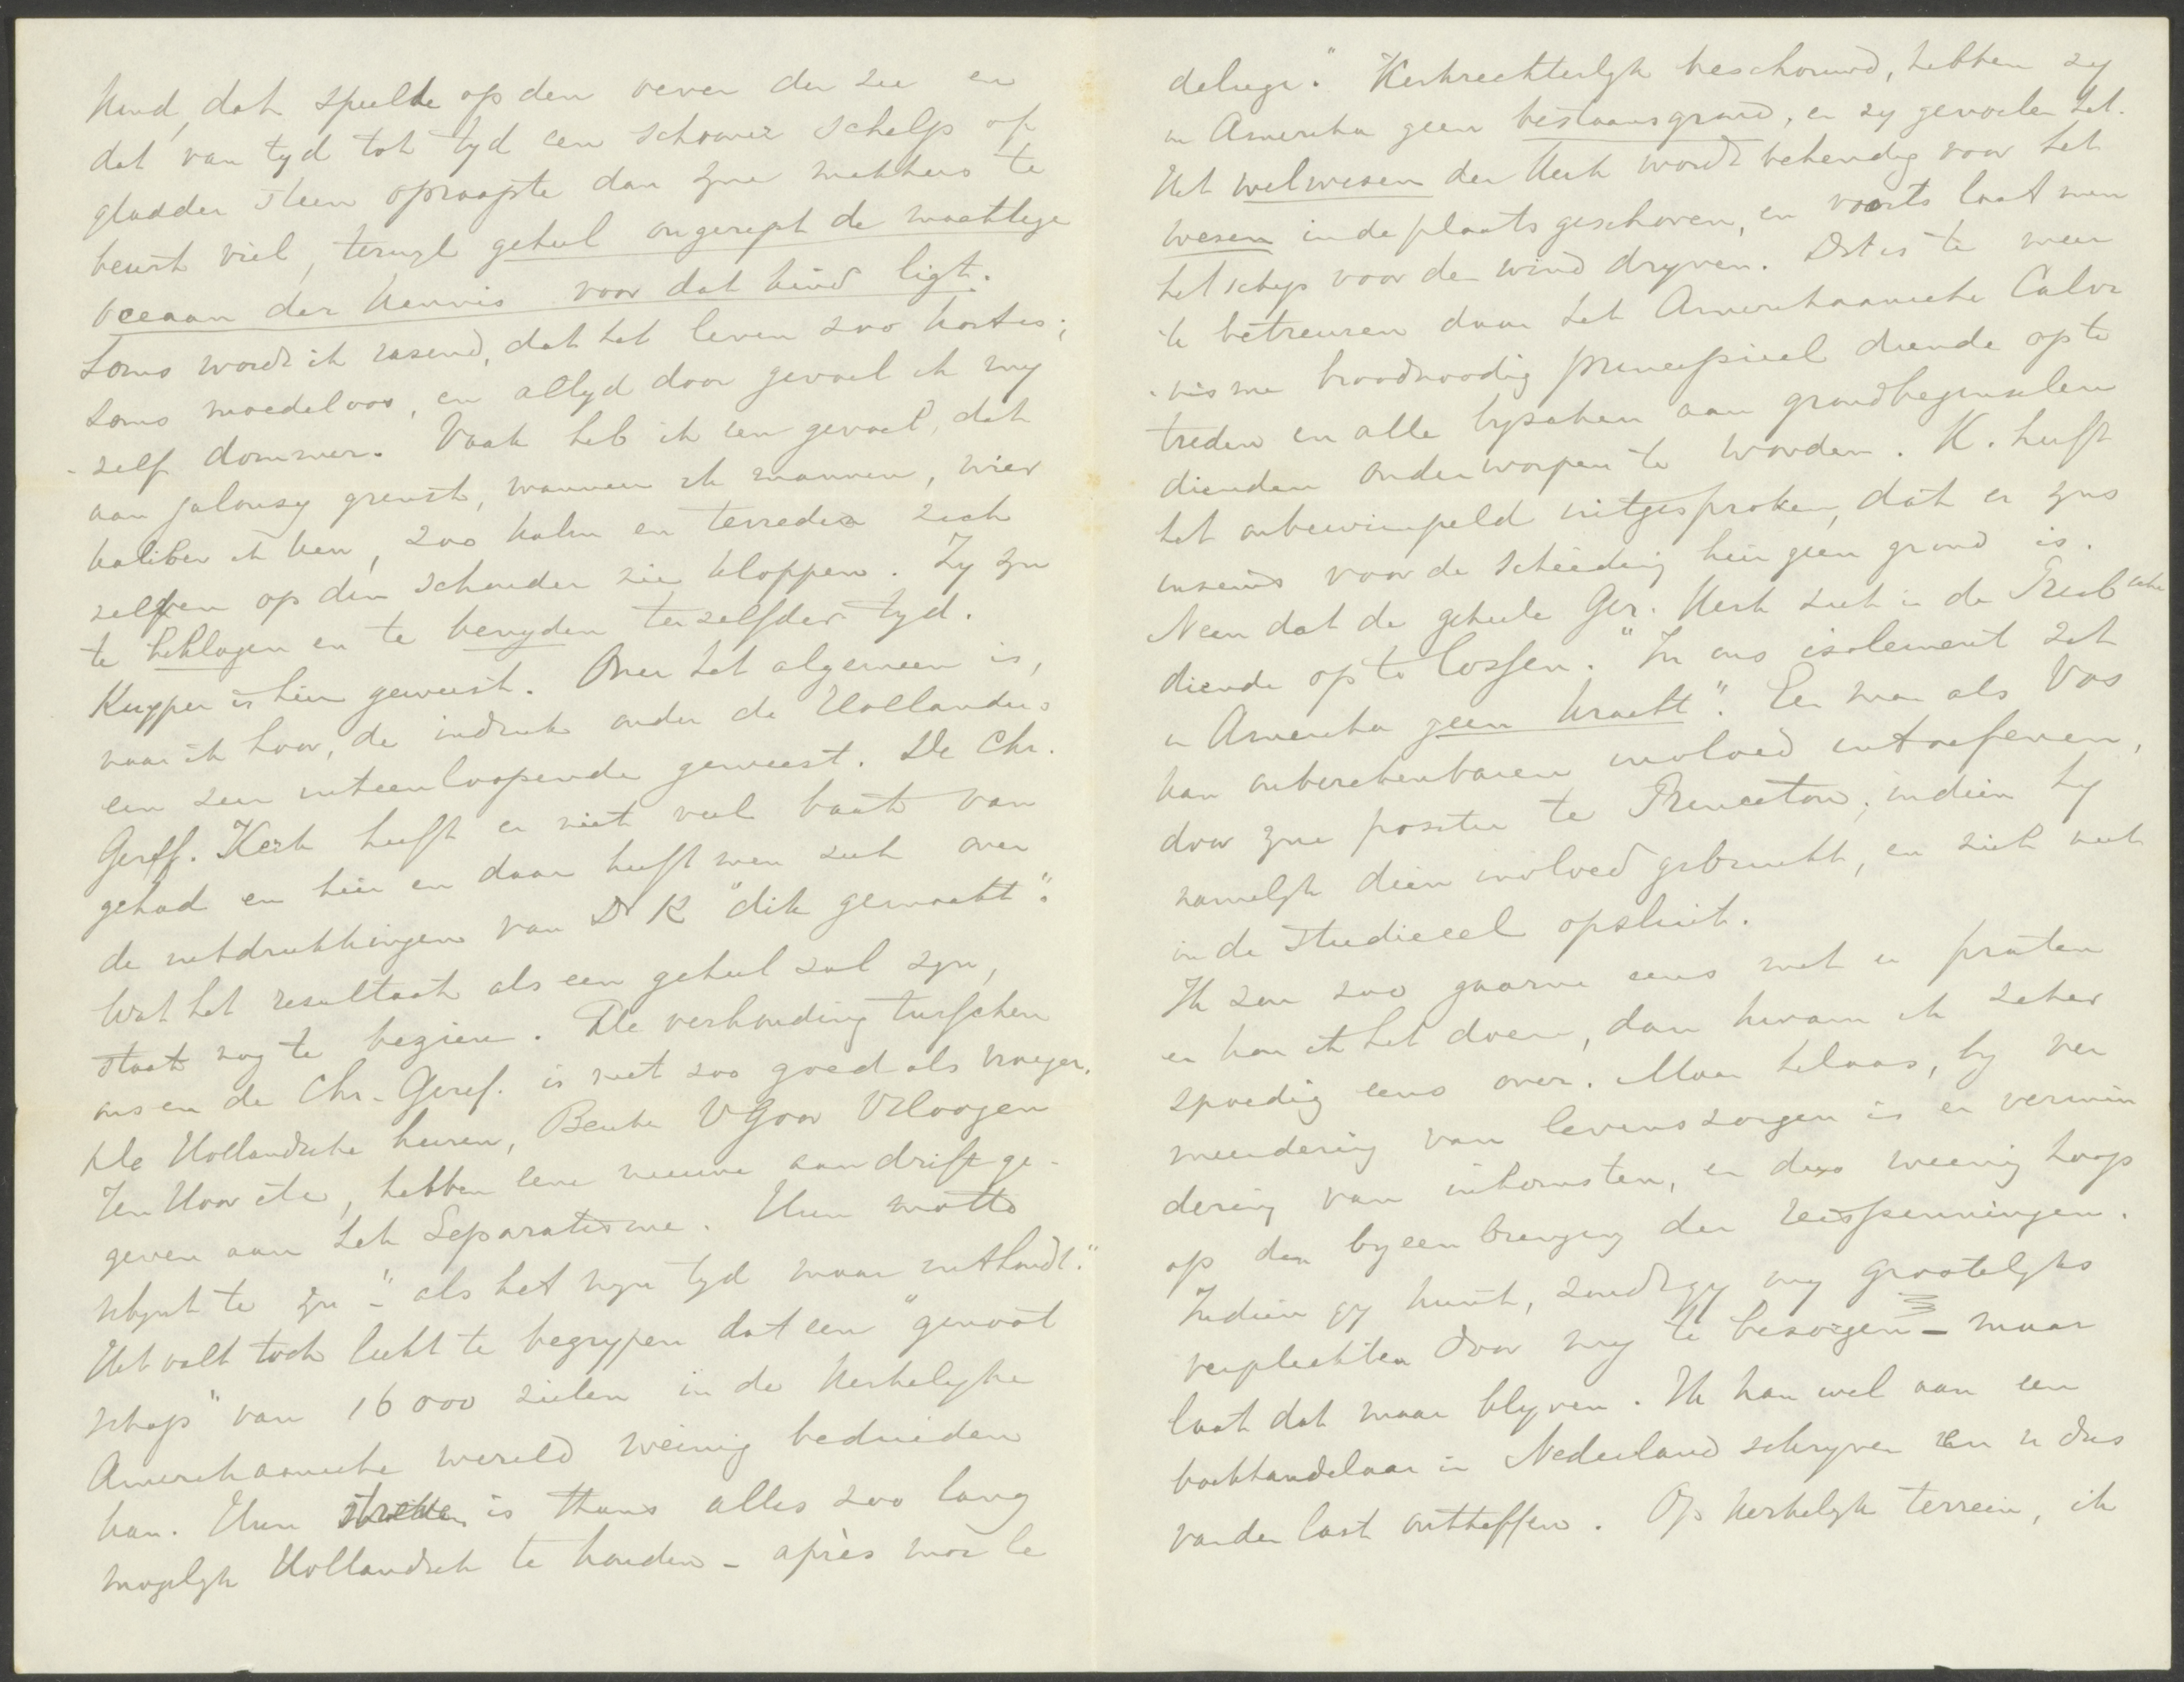 kind, dat speelde op den oever der zee en
dat van tyd tot tyd een schooner schelp of
gladder steen opraapte dan zyne makkers te
beurt viel, terwyl geheel ongerept de machtige
oceaan der kennis voor dat kind ligt.
Soms word ik razend, dat het leven zoo kort is;
soms moedeloos, en altyd door gevoel ik my
-zelf dommer. Vaak heb ik een gevoel, dat
aan jalousy grenst, wanneer ik mannen, wier
kaliber ik ken, zoo kalm en tevreden zich
zelven op den schouder zie kloppen. Zy zyn
te beklagen en te benyden terzelfder tyd.
Kuyper is hier geweest. Over het algemeen is,
naar ik hoor, de indruk onder de Hollanders
een zeer uiteenloopende geweest. De Chr.
Geref. Kerk heeft er niet veel baat van
gehad en hier en daar heeft men zich over
de uitdrukkingen van Dr K "dik gemaakt".
Wat het resultaat als een geheel zal zyn,
staat nog te bezien. De verhouding tusschen
ons en de Chr. Geref. is niet zoo goed als vroeger.
De Hollandsche heeren, Beuker V Goor Vrloogen
Ten Hoor etc, hebben eene nieuwe aandrift ge-
geven aan het Separatisme. Hun motto
schynt te zyn - "als het myn tyd maar uithoudt."
Het valt toch licht te begrypen dat een "genoot
schap" van 16000 zielen in de Kerkelyke
Amerikaansche wereld weinig beduiden
kan. Hun streven is thans alles zoo lang
mogelyk Hollandsch te houden - après moi le
deluge." Kerkrechterlyk beschouwd, hebben zy
in Amerika geen bestaansgrond, en zy gevoelen het.
Het welwezen der Kerk wordt behendig voor het
wezen in de plaats geschoven, en voorts laat men
het schip voor den wind dryven. Dat is te meer
te betreuren daar het Amerikaansche Calvi
-nisme broodnoodig principieel diende op te
treden en alle byzaken aan grondbeginselen
dienden onderworpen te worden. K. heeft
het onbewimpeld uitgesproken, dat er zyns
inziens voor de scheiding hier geen grond is.
Neen dat de geheele Ger. Kerk zich in de Presb. sche
diende op te lossen. "In ons isolement zit
in Amerika geen kracht". Een man als Vos
kan onberekenbaren invloed uitoefenen,
door zyne positie te Princeton, indien hy
namelyk dien invloed gebruikt, en zich niet
in de studiecel opsluit.
Ik zou zoo gaarne eens met u praten
en kon ik het doen, dan kwam ik zeker
spoedig eens over. Maar helaas, by ver
meerdering van levenszorgen is er vermin
dering van inkomsten, en dus weinig hoop
op den byeenbrenging der reispenningen.
Indien gy kunt, zoudt gy my grootelyks
verplichten door my te bezorgen - maar
laat dat maar blyven. Ik kan wel aan een
boekhandelaar in Nederland schryven en u dus
van den last ontheffen. Op Kerkelyk terrein, ik